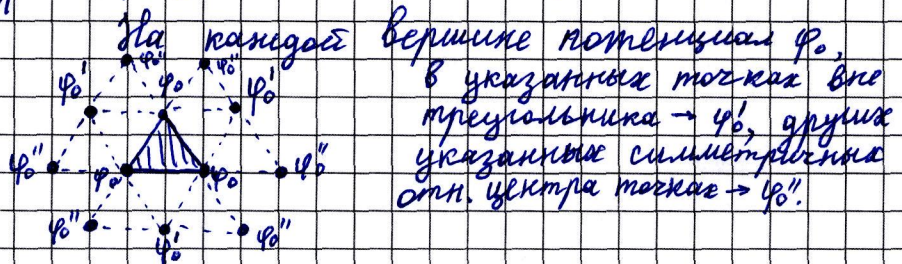 На каждой вершине потенциал φ₀,
в указанных точках вне
треугольника → φ₀', других
указанных симметричных
отн. центра точках → φ₀''.
φ₀'' φ₀''
φ₀' φ₀ φ₀'
φ₀'' φ₀ φ₀ φ₀''
φ₀'' φ₀' φ₀''